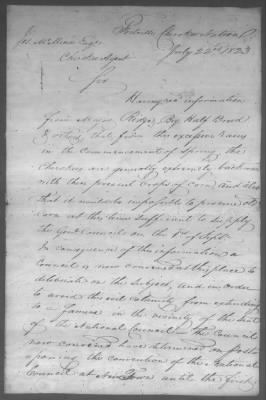 Cherokee Nation
July 22nd 1823
Jos. McMinn Esqr.
Cherokee Agent
Sir
Having rec'd information
from Major Ridge, Big Half Breed
& others, that from the excessive rains
in the commencement of Spring, the
Cherokees are generally extremely backward
with their present crops of corn, and also
that it would be impossible to procure old
corn at this time sufficient to supply
the Genl Council on the 1st of Sept.
In consequence of this information a
Council is now convened at this place to
deliberate on the Subject, and in order
to avoid the evil calamity from extending
to a famine in the vicinity of the Seat
of the National Council the Council
now convened have determined on post-
poning the convention of the National
Council at New Town until the first